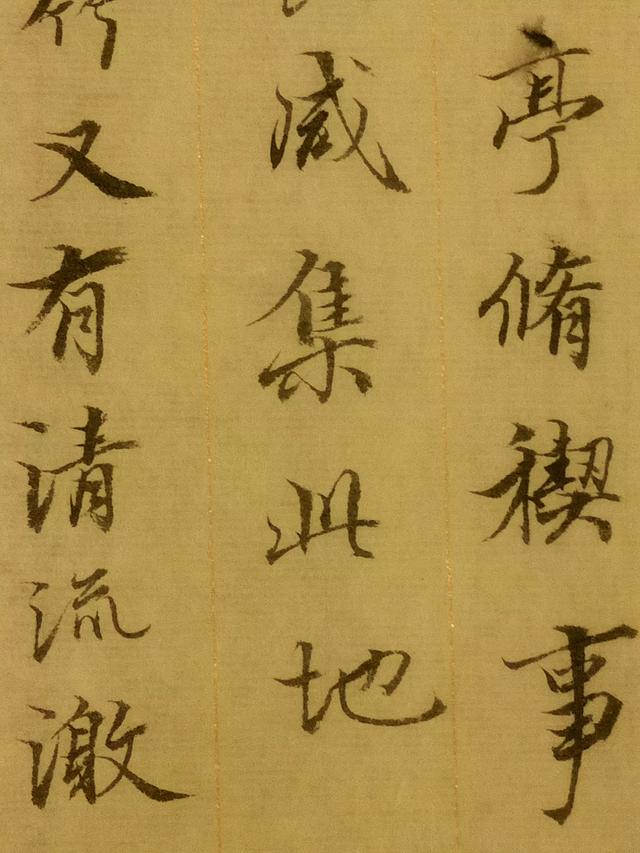 亭脩禊事
咸集此地
竹又有清流激